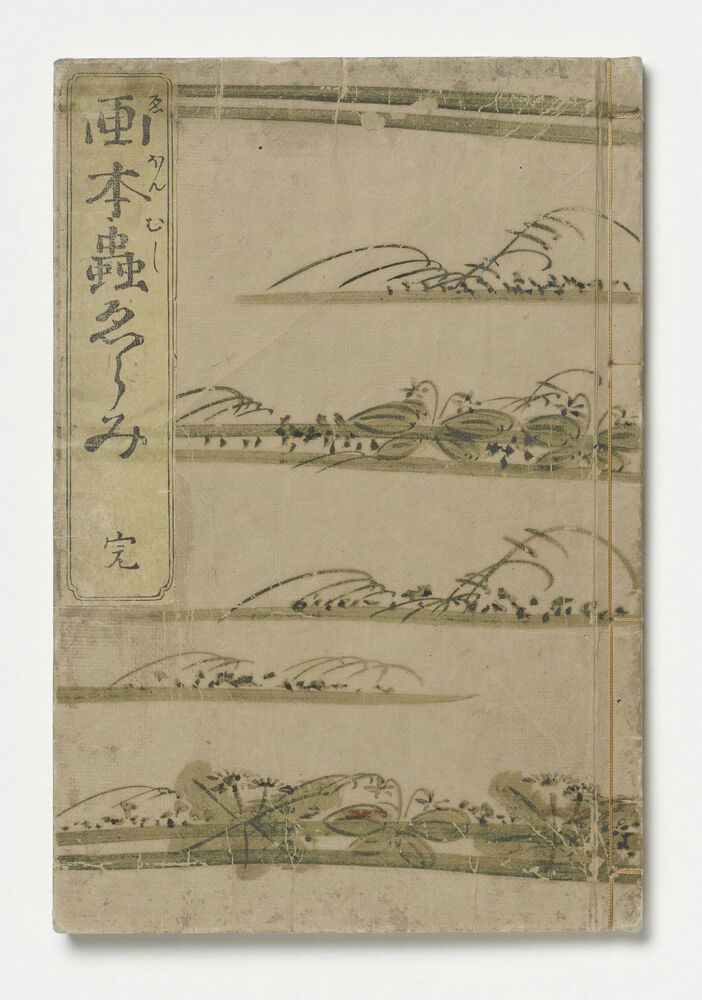 ゑほんむし
画本蟲ゑらみ 完